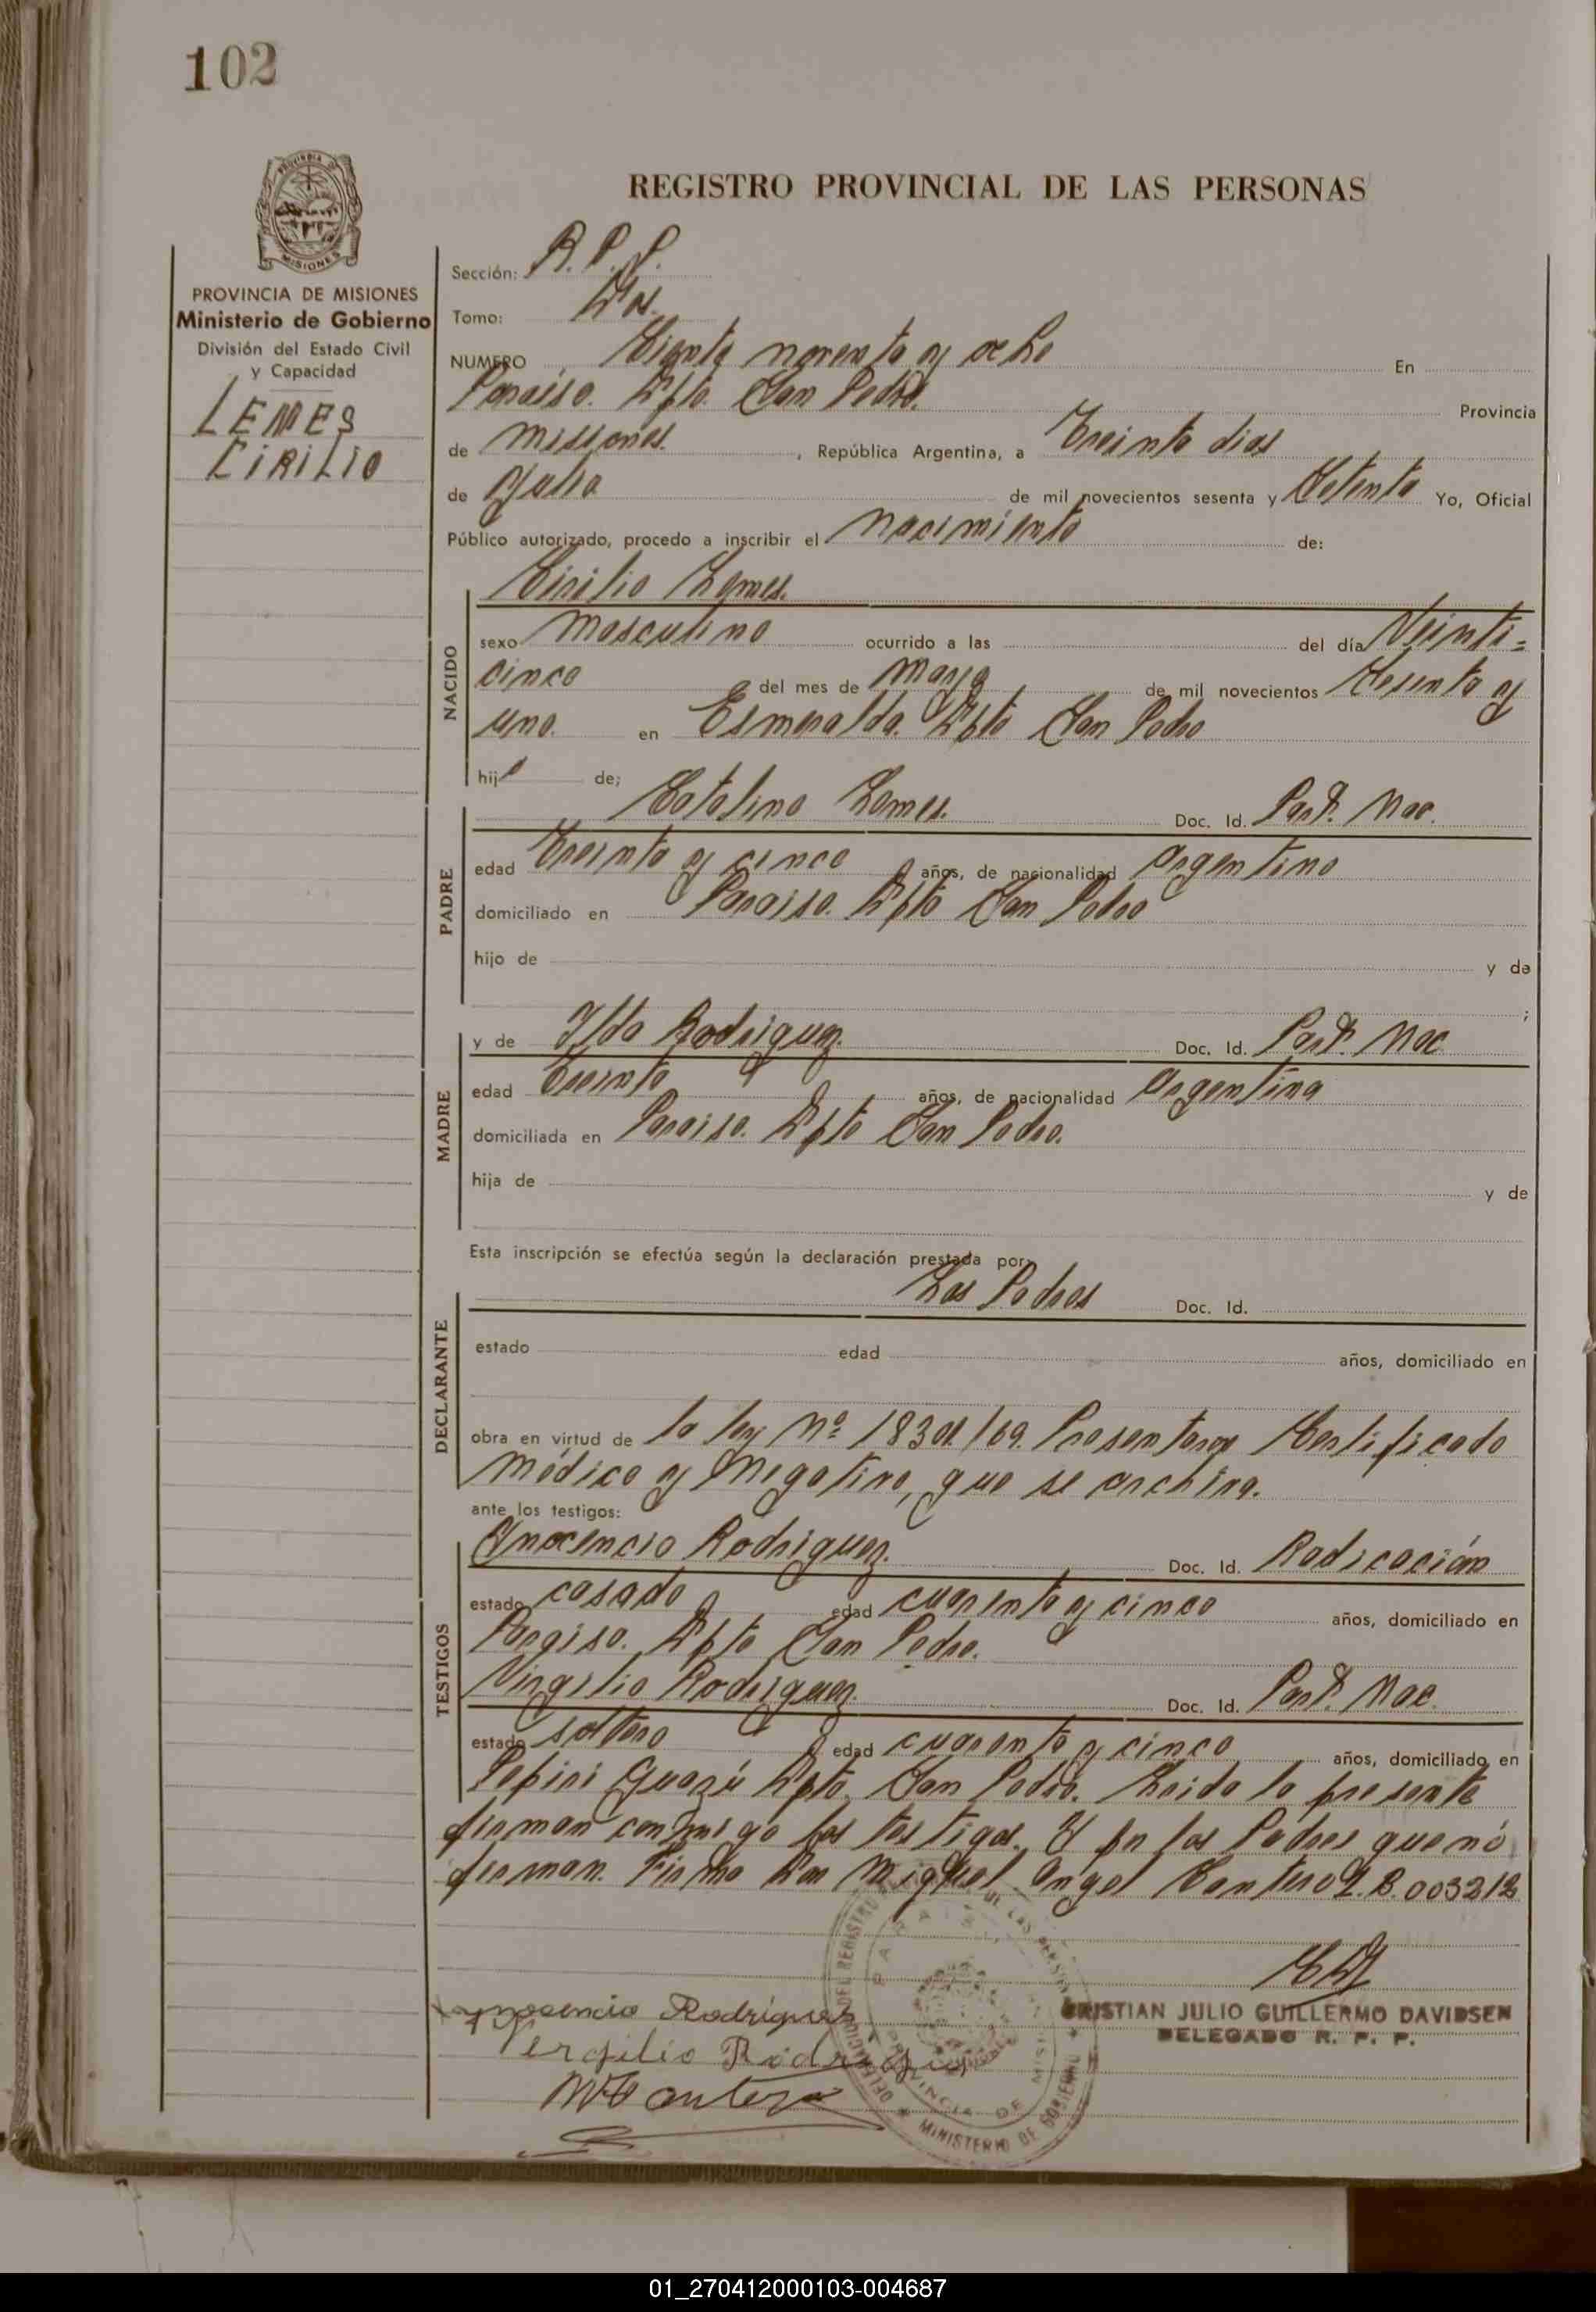 102
PROVINCIA DE
MISIONES
REGISTRO PROVINCIAL DE LAS PERSONAS
PROVINCIA DE MISIONES
Ministerio de Gobierno
División del Estado Civil
y Capacidad
LEMES
CIRILIO
Sección: R. P. P.
Tomo: Dos.
NUMERO Ciento noventa y ocho En
Paraiso. Dpto. San Pedro. Provincia
de Misiones. , República Argentina, a Treinta dias
de Julio de mil novecientos sesenta y Setenta Yo, Oficial
Público autorizado, procedo a inscribir el Nacimiento de:
NACIDO
Cirilio Lemes.
sexo Masculino ocurrido a las del día Veinti=
cinco del mes de Mayo de mil novecientos Sesenta y
uno. en Esmeralda. Dpto San Pedro
hijo de;
PADRE
Catalino Lemes. Doc. Id. Part. Nac.
edad Treinta y cinco años, de nacionalidad Argentino
domiciliado en Paraiso. Dpto San Pedro
hijo de y de
;
MADRE
y de Ilda Rodriguez. Doc. Id. Part. Nac
edad Treinta años, de nacionalidad Argentina
domiciliada en Paraiso. Dpto San Pedro.
hija de y de
Esta inscripción se efectúa según la declaración prestada por
DECLARANTE
Los Padres Doc. Id.
estado edad años, domiciliado en
obra en virtud de la ley Nº 18304/69. Presentaron Certificado
Médico y Negativo, que se archiva.
ante los testigos:
TESTIGOS
Ynocencio Rodriguez. Doc. Id. Radicación
estado casado edad cuarenta y cinco años, domiciliado en
Paraiso. Dpto San Pedro.
Virgilio Rodriguez. Doc. Id. Part. Nac.
estado soltero edad cuarenta y cinco años, domiciliado en
Pepiri Guazú Dpto. San Pedro. Leida la presente
firman conmigo los testigos. Y por los Padres que nó
firman. Firma Don Miguel Angel Cantero L.B. 003212
Ynocencio Rodriguez
Vergilio Rodriguez
MACantero
CRISTIAN JULIO GUILLERMO DAVIDSEN
DELEGADO R. P. P.
DELEGACION DEL REGISTRO DE LAS PERSONAS
PROVINCIA DE MISIONES
MINISTERIO DE GOBIERNO
01_270412000103-004687